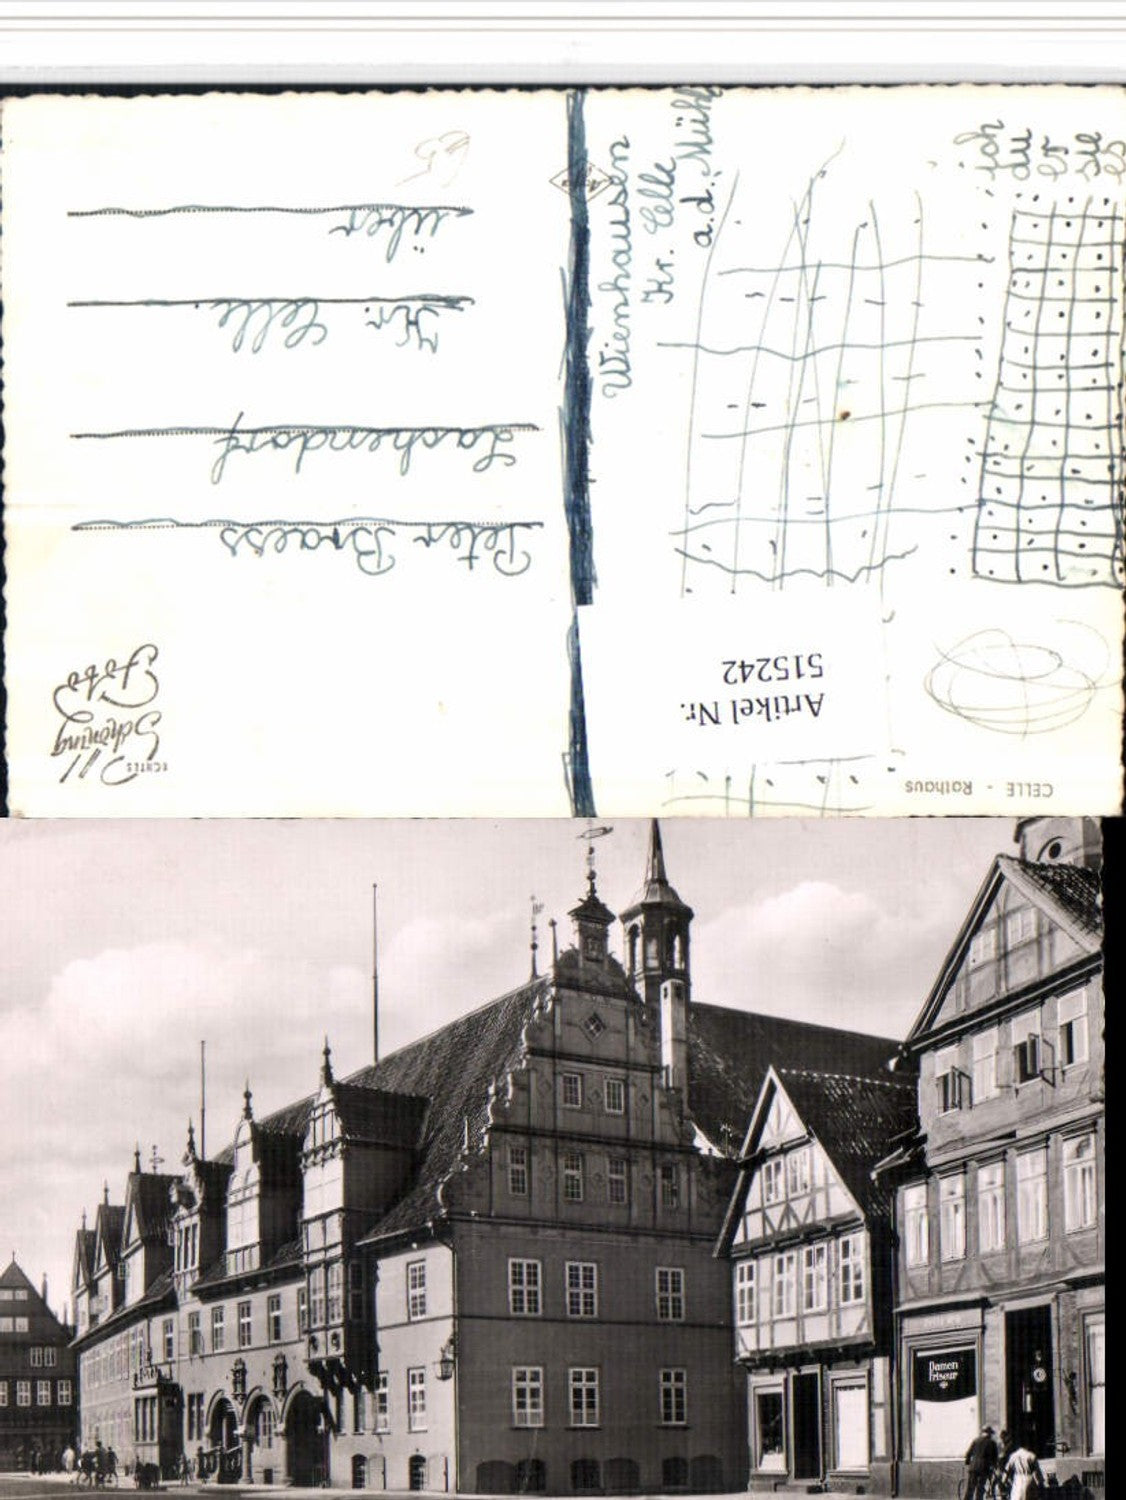 Peter Braess
Lachendorf
Kr. Celle.
über
Wienhausen
Kr. Celle
a.d. Mühl
ich
du
er
sie
es
CELLE - Rathaus
Artikel Nr.
515242
ECHTES
Schöning
Foto
Agfa
Damen
Friseur